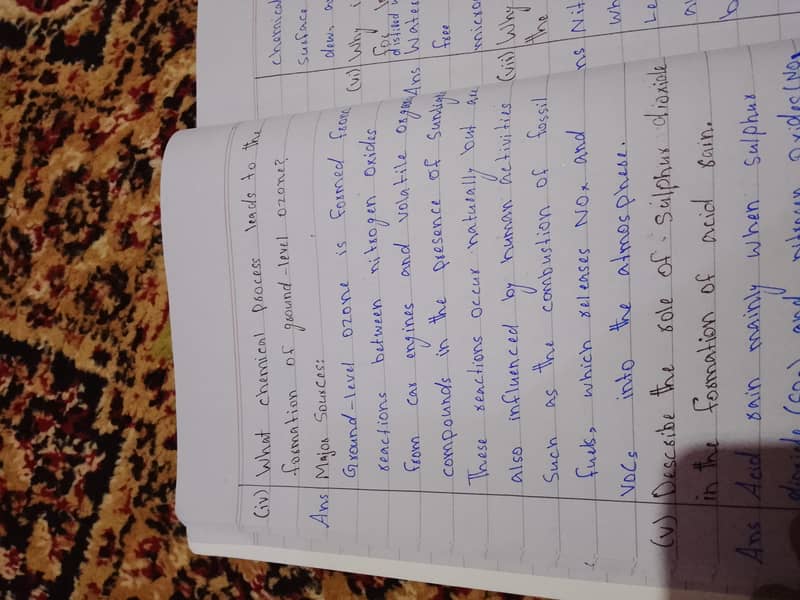 (iv) What chemical process leads to the
formation of ground-level ozone?
Ans Major Sources:
Ground-level ozone is formed from
reactions between nitrogen oxides
from car engines and volatile organic
compounds in the presence of sunlight
These reactions occur naturally but are
also influenced by human activities
Such as the combustion of fossil
fuels, which releases NOx and
VOCs into the atmosphere.
(v) Describe the role of Sulphur dioxide
in the formation of acid rain.
Ans Acid rain mainly when sulphur
dioxide (SO2) and nitrogen oxides (NOx
chemical
Surface
dew
(vi) Why
for
distilled
Ans Water
free
micro
(vii) Why
the
ns Nit
wh
Le
a
b